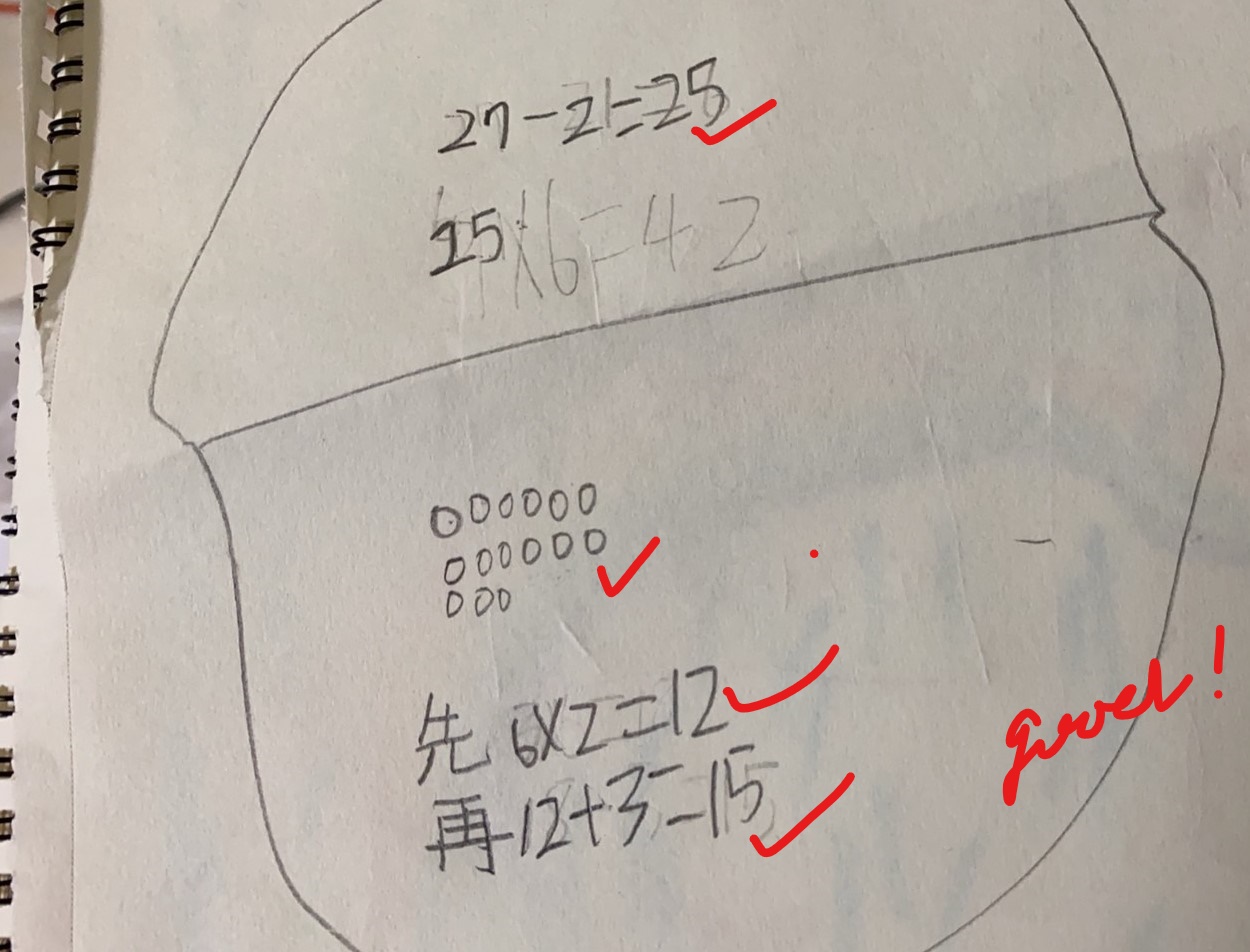 27-21=25
15×6=42
先 6×2=12
再12+3=15
good!